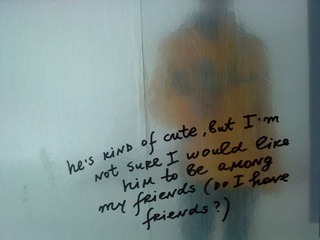 he's kind of cute, but I'm
not sure I would like
him to be among
my friends (do I have
friends?)